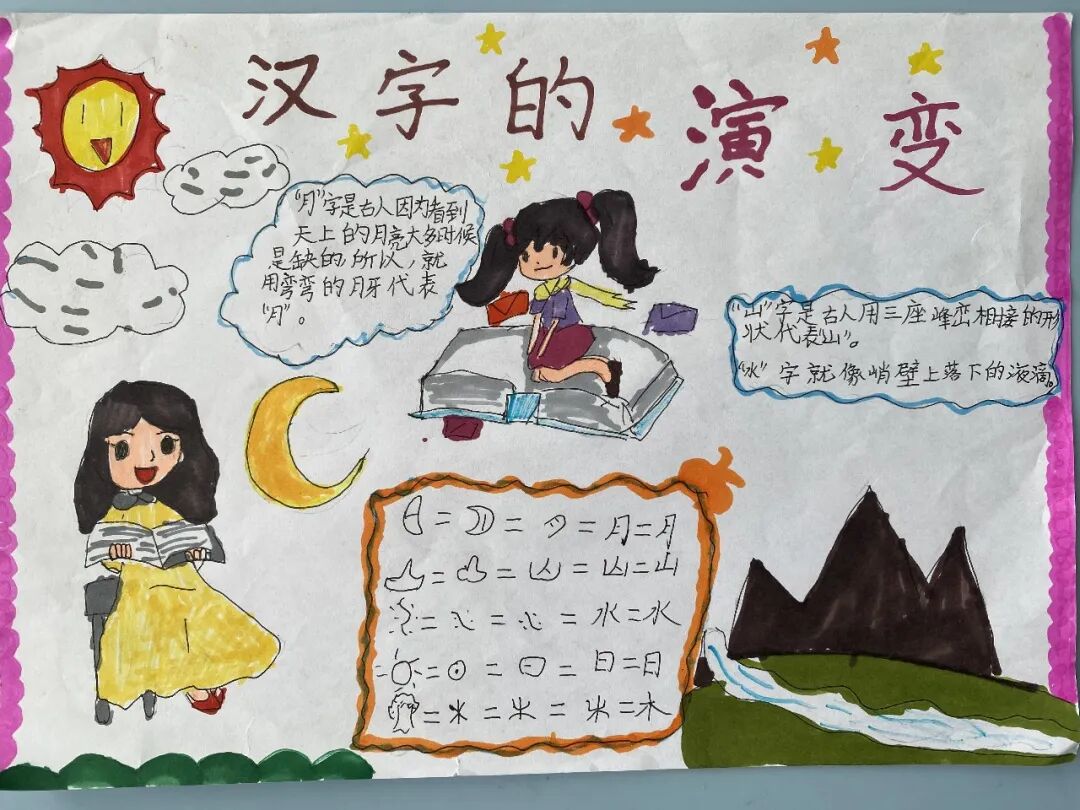 汉字的演变
"月"字是古人因为看到
天上的月亮大多时候
是缺的,所以,就
用弯弯的月牙代表
"月"。
"山"字是古人用三座峰峦相接的形
状代表"山"。
"水"字就像峭壁上落下的液滴。
= = = 月=月
= = = 山=山
= = = 水=水
= = = 日=日
= 木 = 木 = 木 = 木